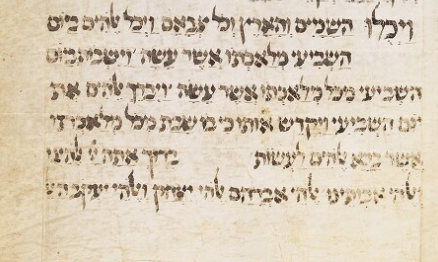 ויכלו השמים והארץ וכל צבאם ויכל ﭏהים ביום
השביעי מלאכתו אשר עשה וישבת ביום
השביעי מכל מלאכתו אשר עשה ויברך ﭏהים את
יום השביעי ויקדש אותו כי בו שבת מכל מלאכתו
אשר ברא ﭏהים לעשות ברוך אתה יי ﭏהינו
וﭏהי אבותינו ﭏהי אברהם ﭏהי יצחק וﭏהי יעקב